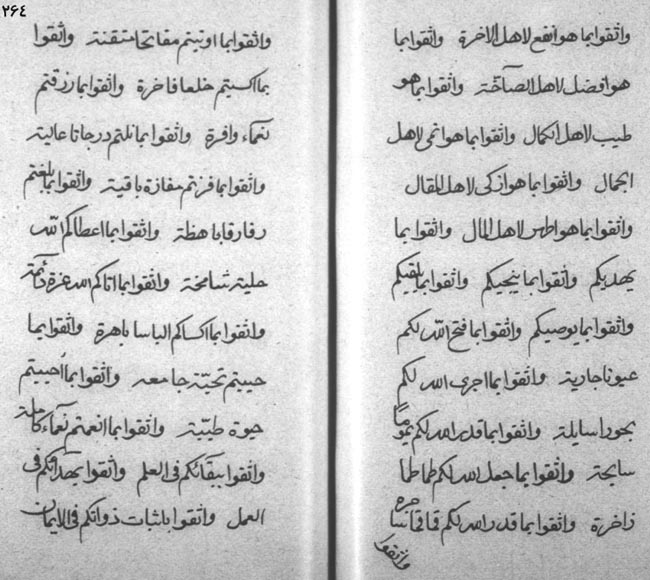 ٢٦٤
واثقوا بما هو انفع لاهل الاخرة واثقوا بما
هو افضل لاهل الصآخّة واثقوا بما هو
طيب لاهل الكمال واثقوا بما هو انمى لاهل
الجمال واثقوا بما هو ازكى لاهل المقال
واثقوا بما هو اطهر لاهل المال واثقوا بما
يهديكم واثقوا بما ينجيكم واثقوا بما
واثقوا بما يوصيكم واثقوا بما فتح اللّه لكم
عيونا جارية واثقوا بما اجرى اللّه لكم
بحورا سايلة واثقوا بما قدر اللّه لكم
سابحة واثقوا بما جعل اللّه لكم طماطما
زاخرة واثقوا بما قدر اللّه لكم
واثقوا
واثقوا بما اوتيتم مفاتحا متقنة واثقوا
بما اكسيتم خلعا فاخرة واثقوا بما رزقتم
نعمآء وافرة واثقوا بما نلتم درجاتا عالية
واثقوا بما فزتم مفازة باقية واثقوا بما بلغتم
رفارفا باهظة واثقوا بما اعطاكم اللّه
حلية شامخة واثقوا بما اتاكم اللّه عزة دآئمة
واثقوا بما اكساكم الباسا باهرة واثقوا بما
حييتم تحيّة جامعه واثقوا بما احييتم
حيوة طيّبة واثقوا بما انعمتم نعمآء كاملة
واثقوا ببقائكم فى العلم واثقوا بهدآيتكم فى
العمل واثقوا بثبات ذواتكم فى الايمان